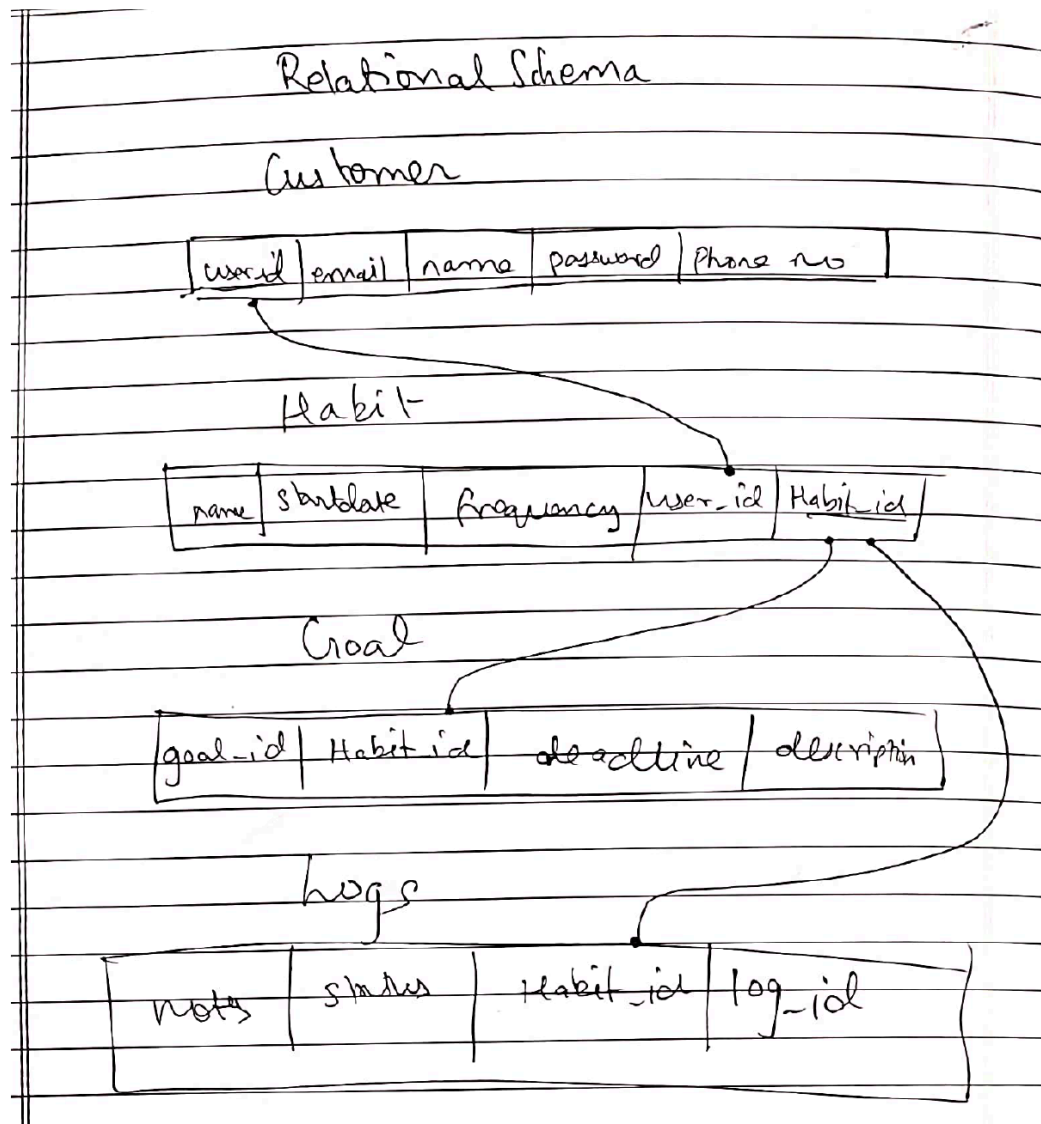 Relational Schema
Customer
userid email name password Phone no
Habit
name startdate frequency user_id Habit_id
Goal
goal_id Habit_id deadline description
Logs
notes status Habit_id log_id